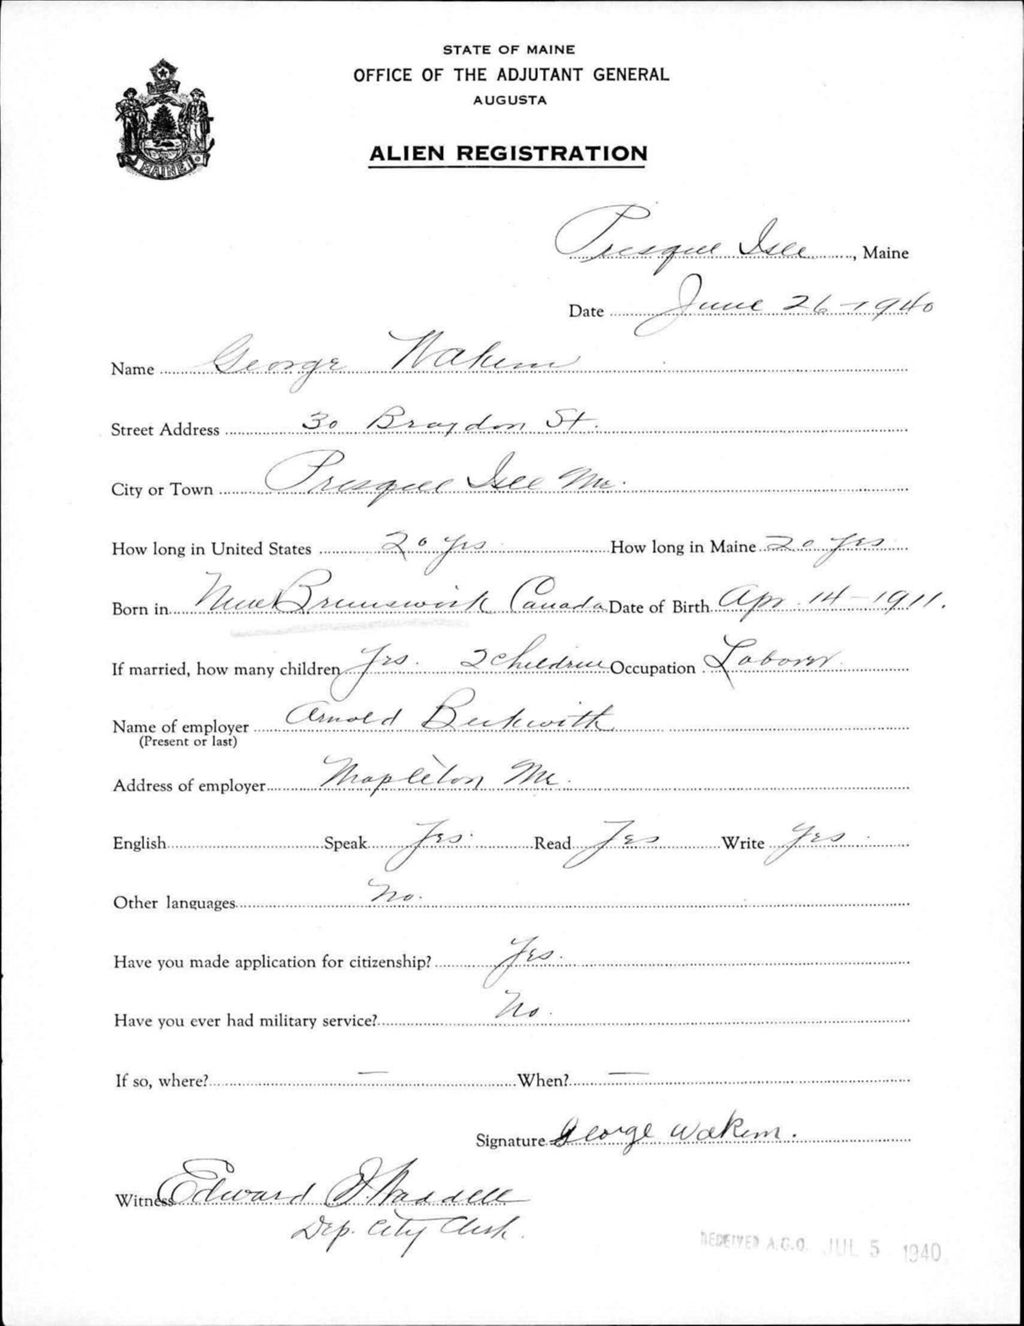 STATE OF MAINE
OFFICE OF THE ADJUTANT GENERAL
AUGUSTA
ALIEN REGISTRATION
MAINE
Presque Isle, Maine
Date June 26-1940
Name George Wakem
Street Address 30 Braydon St.
City or Town Presque Isle Me.
How long in United States 20 yrs How long in Maine 20 yrs
Born in New Brunswick Canada Date of Birth Apr 14-1911.
If married, how many children Yes. 2 Children Occupation Laborer
Name of employer Arnold Beckwith
(Present or last)
Address of employer Mapleton Me.
English Speak Yes. Read Yes Write Yes
Other languages No.
Have you made application for citizenship? Yes.
Have you ever had military service? No.
If so, where? — When? —
Signature George Wakem.
Witness Edward Waddell
Dep. City Clerk.
RECEIVED A.G.O. JUL 5 1940